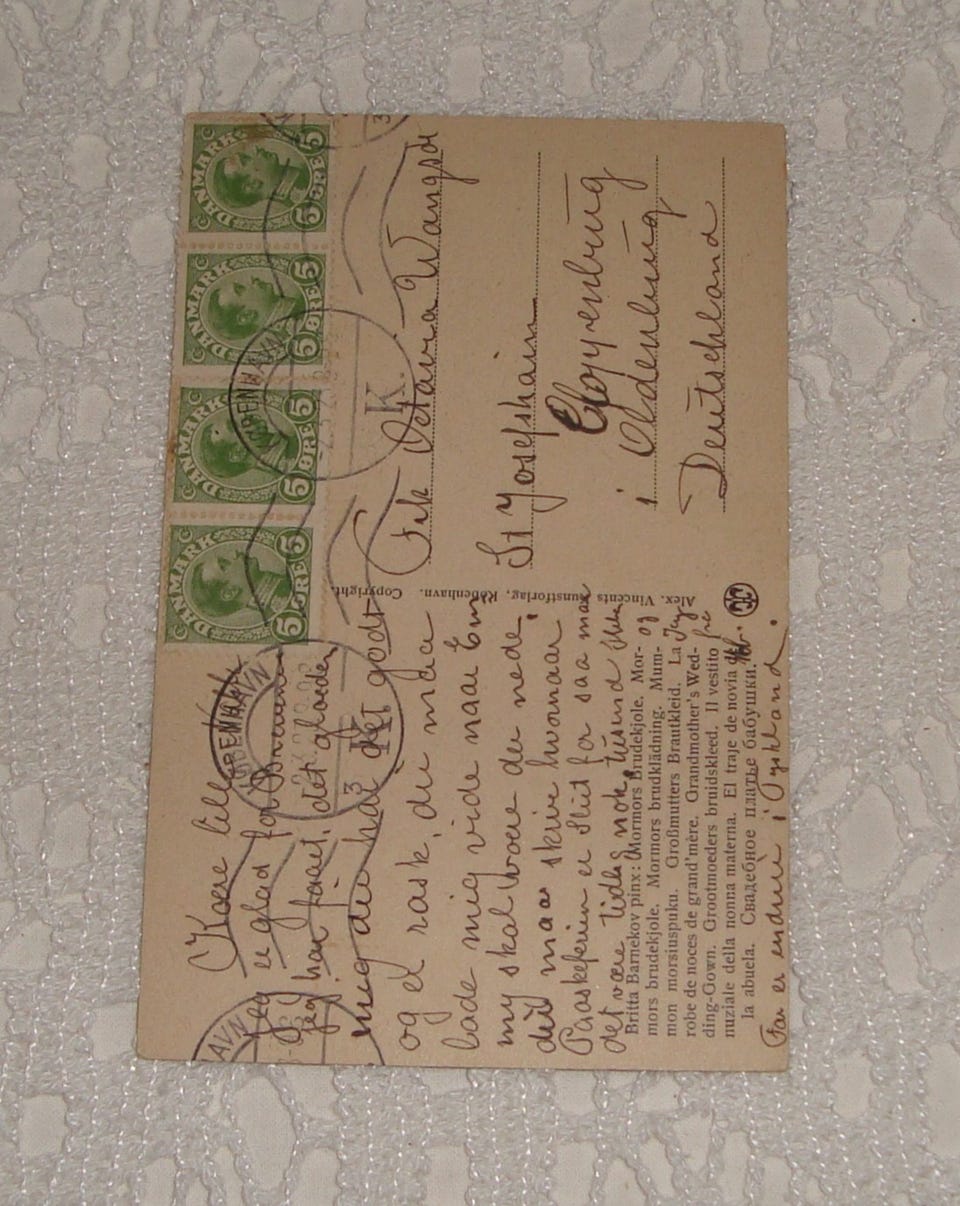 DANMARK 5 ØRE
DANMARK 5 ØRE
DANMARK 5 ØRE
DANMARK 5 ØRE
KØBENHAVN
K.
KØBENHAVN
K.
3
Kære lille
Jeg er glad for
jeg har faaet. det glæder
mig du har det godt
og er rask, du maa
lade mig vide naar
ny skal være der nede,
du maa skrive hvornaar
Paaskeferien er Slut for saa maa
det være tidlig nok, tusend
Far er endnu i Tyskland.
og
Britta Barnekov pinx: Mormors Brudekjole. Mor-
mors brudekjole. Mormors brudklädning. Mum-
mon morsiuspuku. Großmutters Brautkleid. La
robe de noces de grand'mère. Grandmother's Wed-
ding-Gown. Grootmoeders bruidskleed. Il vestito
nuziale della nonna materna. El traje de novia de
la abuela. Свадебное платье бабушки.
Alex. Vincents Kunstforlag, København. Copyright.
Frk Octavia
St Josefshain
Cloppenburg
i Oldenburg
Deutschland